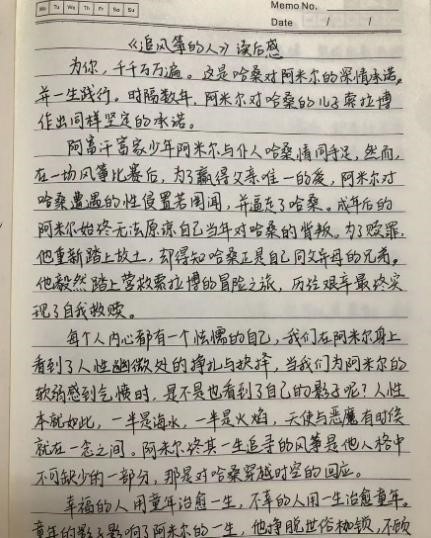 Memo No.
Mo Tu We Th Fr Sa Su
Date / /
《追风筝的人》读后感
为你，千千万万遍。这是哈桑对阿米尔的深情承诺，
并一生践行。时隔数年，阿米尔对哈桑的儿子索拉博
作出同样坚定的承诺。
阿富汗富家少年阿米尔与仆人哈桑情同手足，然而，
在一场风筝比赛后，为了赢得父亲唯一的爱，阿米尔对
哈桑遭遇的性侵置若罔闻，并逼走了哈桑。成年后的
阿米尔始终无法原谅自己当年对哈桑的背叛。为了赎罪，
他重新踏上故土，却得知哈桑正是自己同父异母的兄弟。
他毅然踏上营救索拉博的冒险之旅，历经艰辛最终实
现了自我救赎。
每个人内心都有一个怯懦的自己，我们在阿米尔身上
看到了人性幽微处的挣扎与抉择，当我们为阿米尔的
软弱感到气愤时，是不是也看到了自己的影子呢？人性
本就如此，一半是海水，一半是火焰，天使与恶魔有时候
就在一念之间。阿米尔终其一生追寻的风筝是他人格中
不可缺少的一部分，那是对哈桑穿越时空的回应。
幸福的人用童年治愈一生，不幸的人用一生治愈童年。
童年的影子影响了阿米尔的一生，他挣脱世俗枷锁，不顾